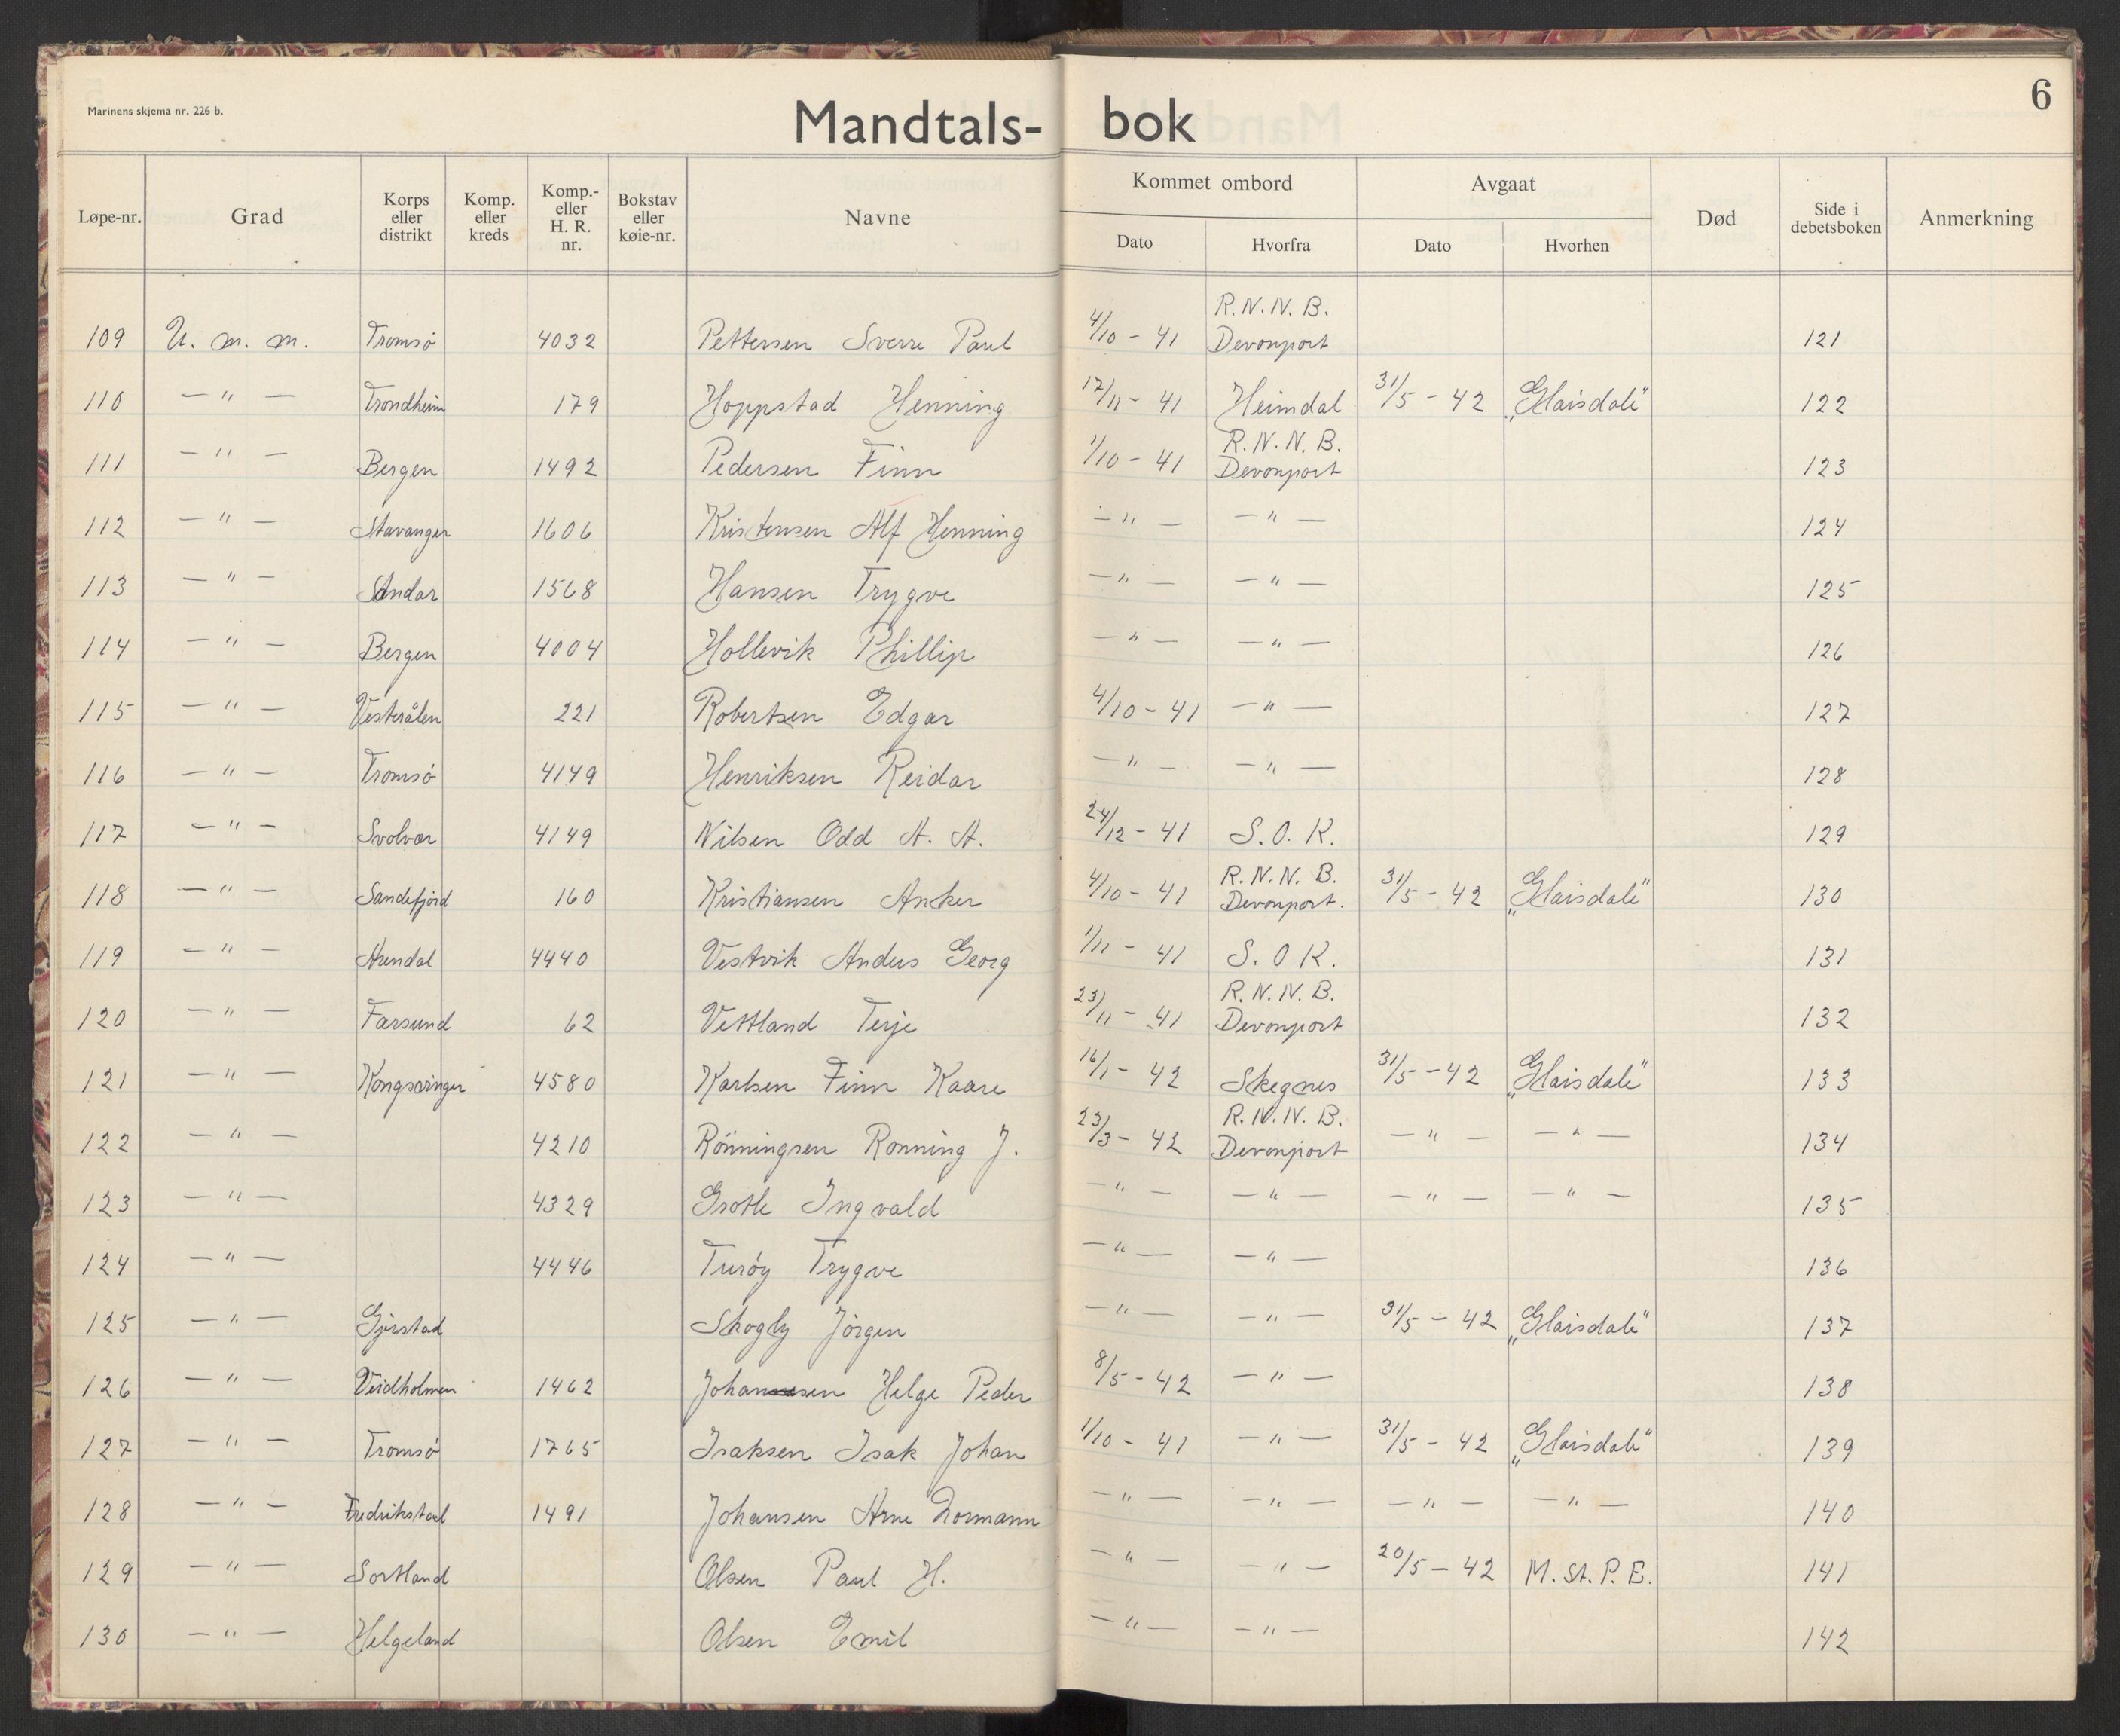 Marinens skjema nr. 226 b.
Mandtals- bok
6
Løpe-nr. Grad Korps eller distrikt Komp. eller kreds Komp.- eller H. R. nr. Bokstav eller køie-nr. Navne Kommet ombord Dato Hvorfra Avgaat Dato Hvorhen Død Side i debetsboken Anmerkning
109 U. m. m. Tromsö 4032 Pettersen Sverre Paul 4/10 - 41 R.N.N.B. Devonport 121
110 — " — Trondheim 179 Hoppstad Henning 17/11 - 41 Heimdal 31/5 - 42 „Glaisdale" 122
111 — " — Bergen 1492 Pedersen Finn 1/10 - 41 R.N.N.B. Devonport 123
112 — " — Stavanger 1606 Kristensen Alf Henning — " — — " — 124
113 — " — Sandar 1568 Hansen Trygve — " — — " — 125
114 — " — Bergen 4004 Hollevik Phillip — " — — " — 126
115 — " — Vesterålen 221 Robertsen Edgar 4/10 - 41 — " — 127
116 — " — Tromsö 4149 Henriksen Reidar — " — — " — 128
117 — " — Svolvær 4149 Nilsen Odd A. A. 24/12 - 41 S.O.K. 129
118 — " — Sandefjord 160 Kristiansen Anker 4/10 - 41 R.N.N.B. Devonport. 31/5 - 42 „Glaisdale" 130
119 — " — Arendal 4440 Vestvik Anders Georg 1/11 - 41 S.O K. 131
120 — " — Farsund 62 Vettland Terje 23/11 - 41 R.N.N.B. Devonport 132
121 — " — Kongsvinger 4580 Karlsen Finn Kaare 16/1 - 42 Skegnes 31/5 - 42 „Glaisdale" 133
122 — " — 4210 Rönningsen Ronning J. 23/3 - 42 R.N.N.B. Devonport — " — — " — 134
123 — " — 4329 Grotle Ingvald — " — — " — — " — — " — 135
124 — " — 4446 Turöy Trygve — " — — " — 136
125 — " — Gjerstad Skogly Jörgen — " — — " — 31/5 - 42 „Glaisdale" 137
126 — " — Veidholmen 1462 Johansen Helge Peder 8/5 - 42 — " — 138
127 — " — Tromsö 1765 Isaksen Isak Johan 1/10 - 41 — " — 31/5 - 42 „Glaisdale" 139
128 — " — Fredrikstad 1491 Johansen Arne Normann — " — — " — — " — — " — 140
129 — " — Sortland Olsen Paul H. — " — — " — 20/5 - 42 M.St.P.E. 141
130 — " — Helgeland Olsen Emil — " — — " — 142